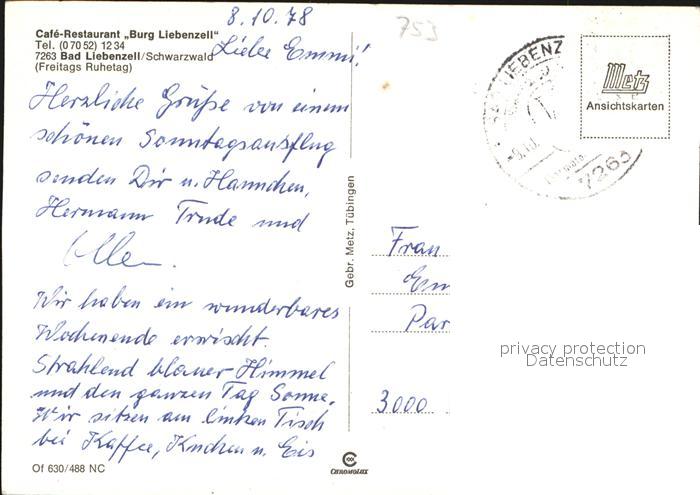 8.10.78
753
Café-Restaurant „Burg Liebenzell"
Tel. (0 70 52) 12 34
7263 Bad Liebenzell/Schwarzwald
(Freitags Ruhetag)
Liebe Emmi!
Herzliche Grüße von einem
schönen Sonntagsausflug
senden Dir u. Hannchen,
Hermann Trude und
Wir haben ein wunderbares
Wochenende erwischt.
Strahlend blauer Himmel
und den ganzen Tag Sonne.
Wir sitzen am linken Tisch
bei Kaffee, Kuchen u. Eis
Of 630/488 NC
Gebr. Metz, Tübingen
CHROMOLUX
LIEBENZ
7263
Metz
Ansichtskarten
Frau
Em
Par
3000
privacy protection
Datenschutz